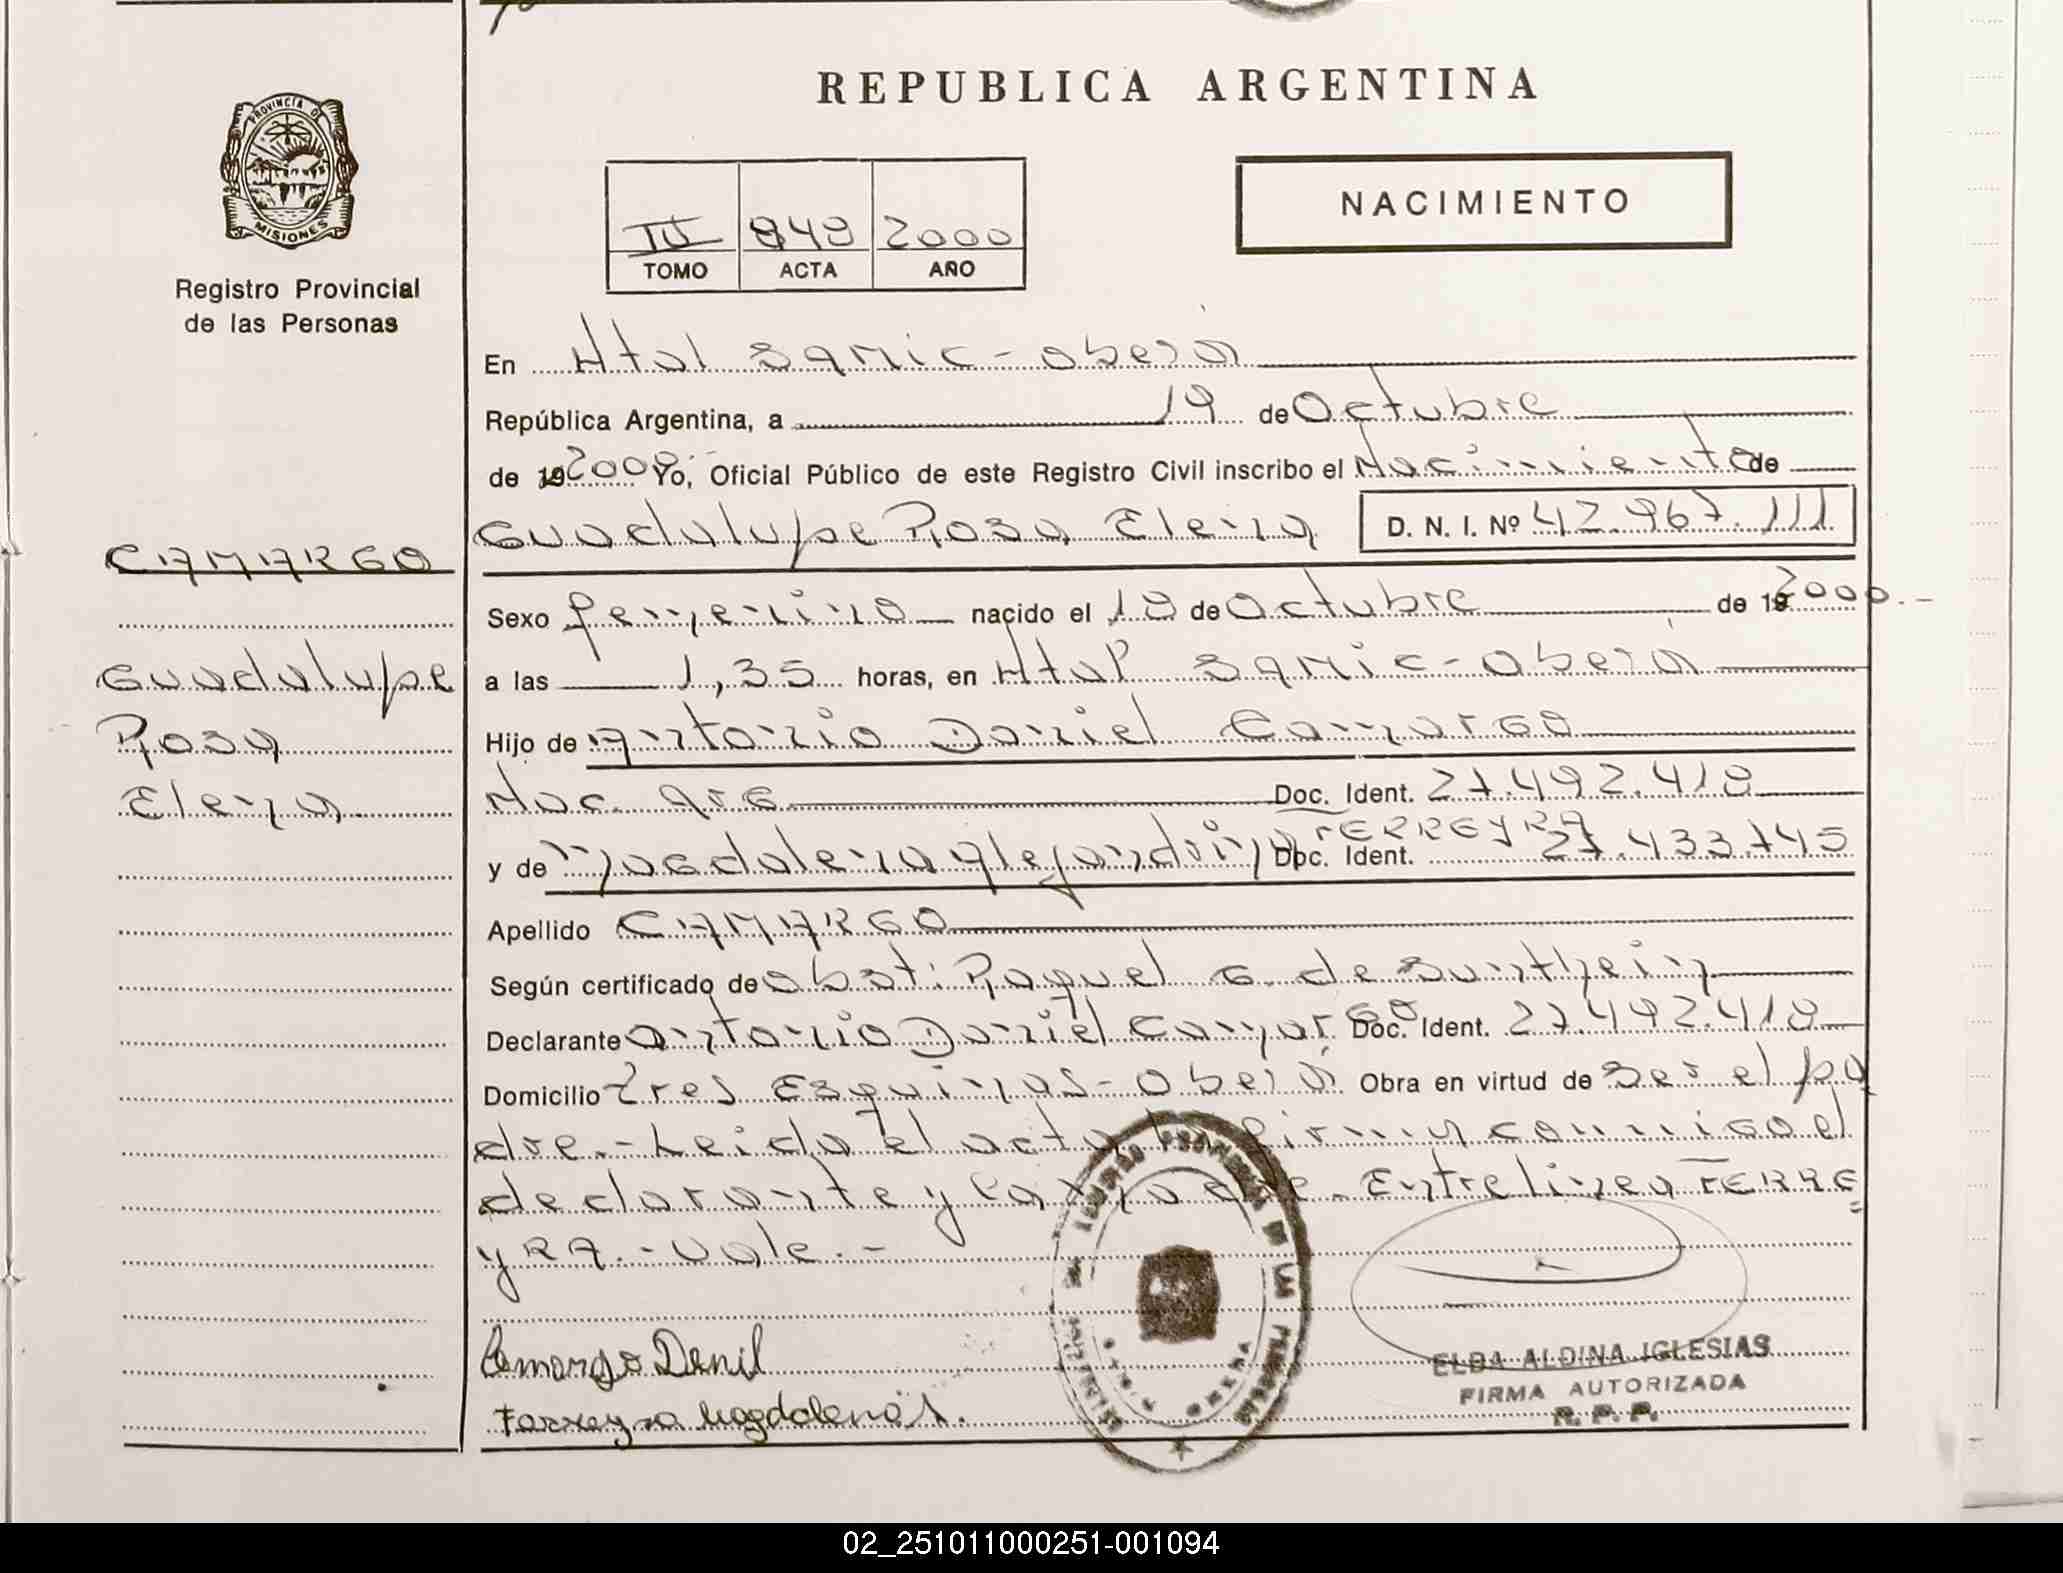 REPUBLICA ARGENTINA
PROVINCIA D
MISIONES
Registro Provincial
de las Personas
NACIMIENTO
IV 949 2000
TOMO ACTA AÑO
En Htal Samic - oberá
República Argentina, a 19 de Octubre
de 19 2000.- Yo, Oficial Público de este Registro Civil inscribo el Nacimiento de
Guadalupe Rosa Elena D. N. I. Nº 42.967.111
CAMARGO
Guadalupe
Rosa
Elena.
Sexo femenino nacido el 18 de Octubre de 19 2000.-
a las 1,35 horas, en Htal Samic - Oberá
Hijo de Antonio Daniel Camargo
Nac. Arg Doc. Ident. 27.492.418
y de Magdalena Alejandrina FERREYRA Doc. Ident. 27.433.745
Apellido CAMARGO
Según certificado de obst: Raquel G. de Suntheim
Declarante Antonio Daniel Camargo Doc. Ident. 27.492.418
Domicilio Tres Esquinas - Oberá Obra en virtud de Ser el pa
dre.- Leida el acta la firma conmigo el
declarante y la madre. Entrelinea FERRE
YRA.- Vale.-
Camargo Danil
Ferreyra Magdalena A.
ELDA ALDINA IGLESIAS
FIRMA AUTORIZADA
R. P. P.
02_251011000251-001094